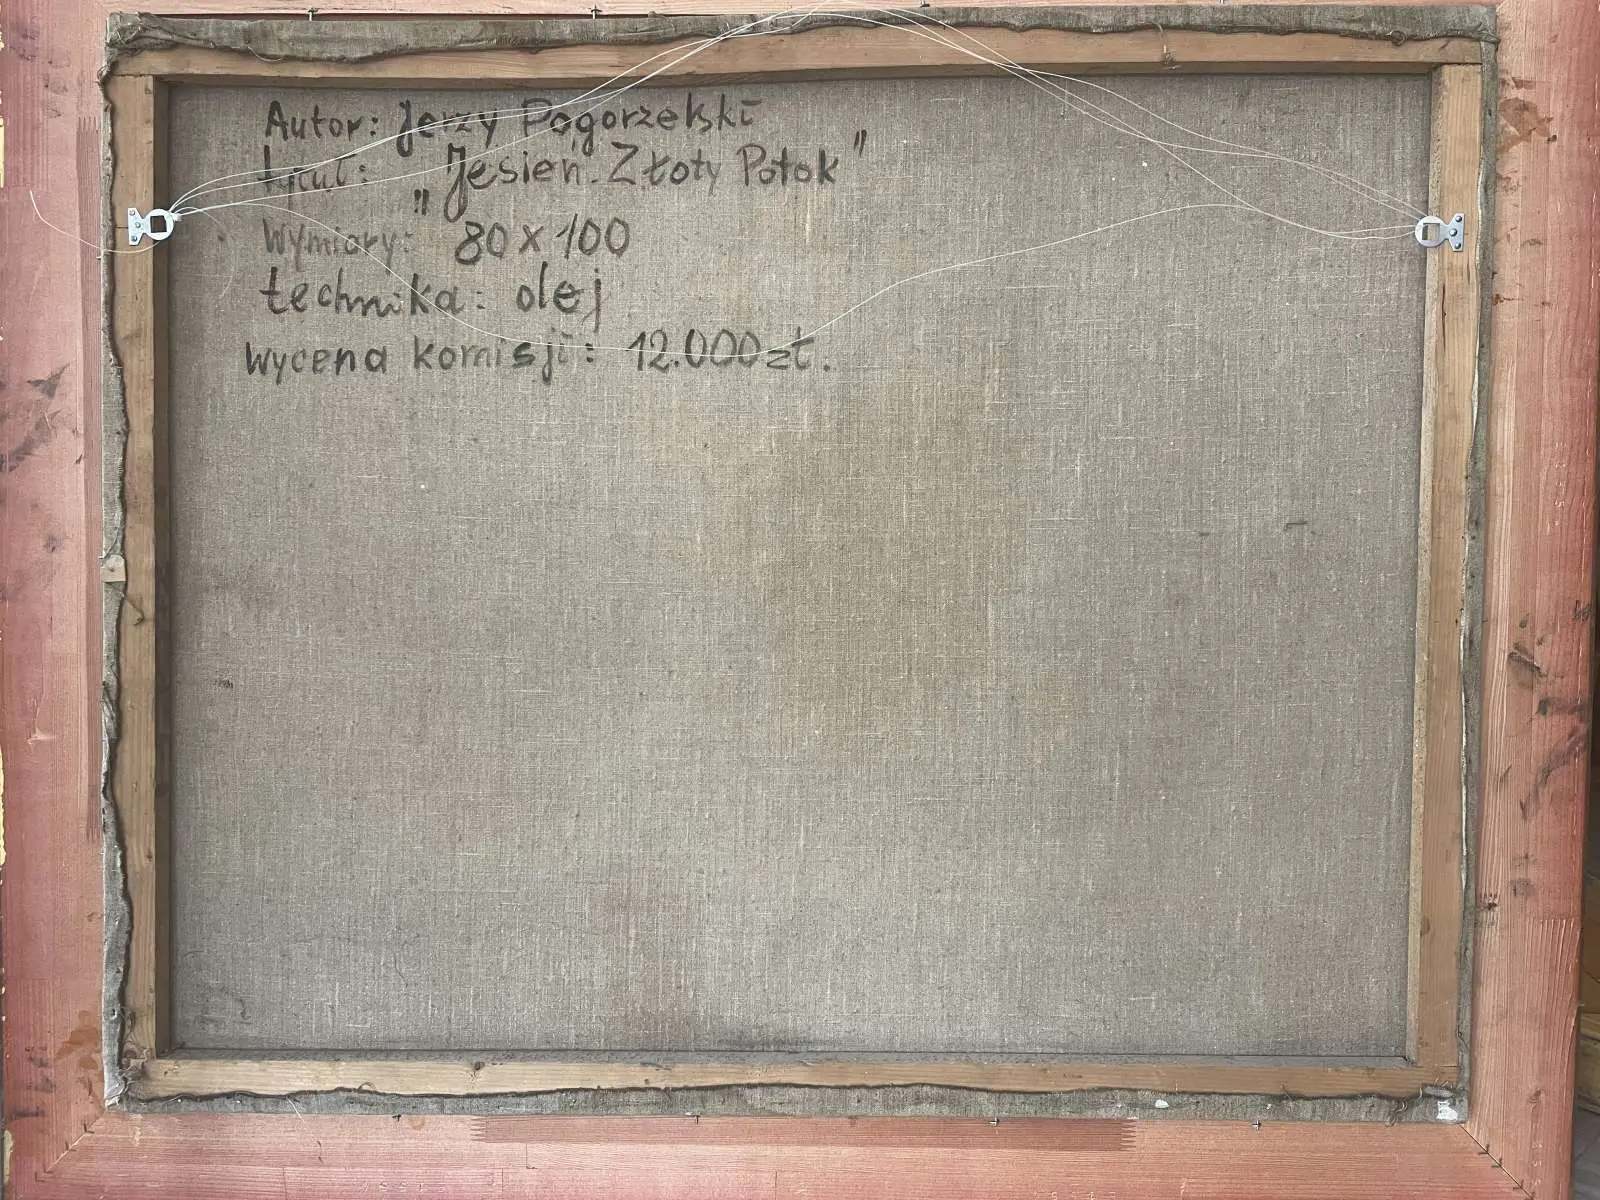 Autor: Jerzy Pogorzelski
tytuł: „Jesień. Złoty Potok”
Wymiary: 80 x 100
technika: olej
Wycena komisji: 12.000 zł.